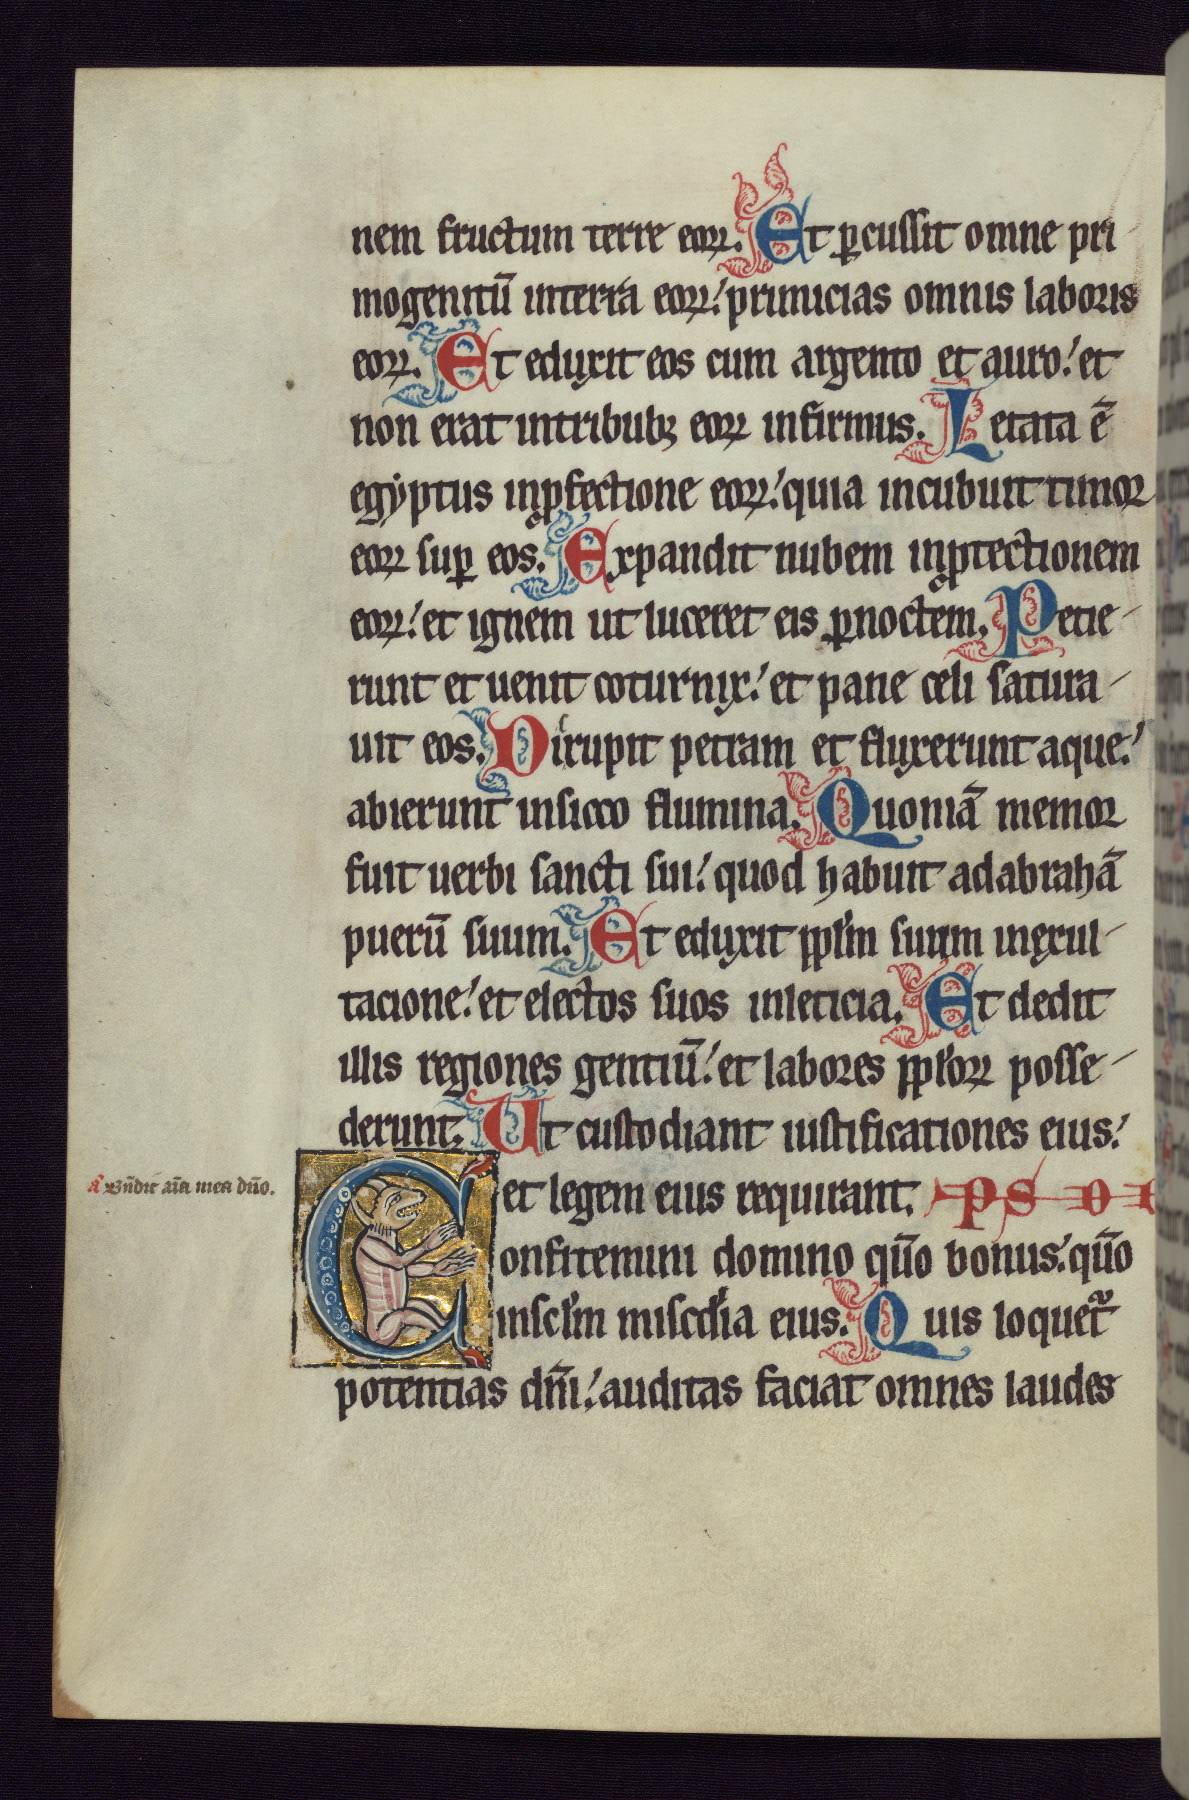 nem fructum terre eoꝝ. Et ꝑcussit omne pri
mogenitū interra eoꝝ: primicias omnis laboris
eoꝝ. Et eduxit eos cum argento et auro: et
non erat intribubꝫ eoꝝ infirmus. Letata ē
egyptus inꝓfectione eoꝝ: quia incubuit timor
eoꝝ suꝑ eos. Expandit nubem inꝓtectionem
eoꝝ: et ignem ut luceret eis ꝑnoctem. Petie
runt et uenit coturnix: et pane celi satura
uit eos. Dirupit petram et fluxerunt aque:
abierunt insicco flumina. Quoniā memor
fuit uerbi sancti sui: quod habuit adabrahā
puerū suum. Et eduxit ppl'm suum inexul
tacione: et electos suos inleticia. Et dedit
illis regiones gentiū: et labores ppl'oꝝ posse
derunt. Ut custodiant iustificationes eius:
et legem eius requirant. PS DI
a Bn̄dic aīa mea dn̄o.
Confitemini domino qūo bonus: qūo
inscl'm miscd'ia eius. Quis loquet᷑
potentias dn̄i: auditas faciat omnes laudes